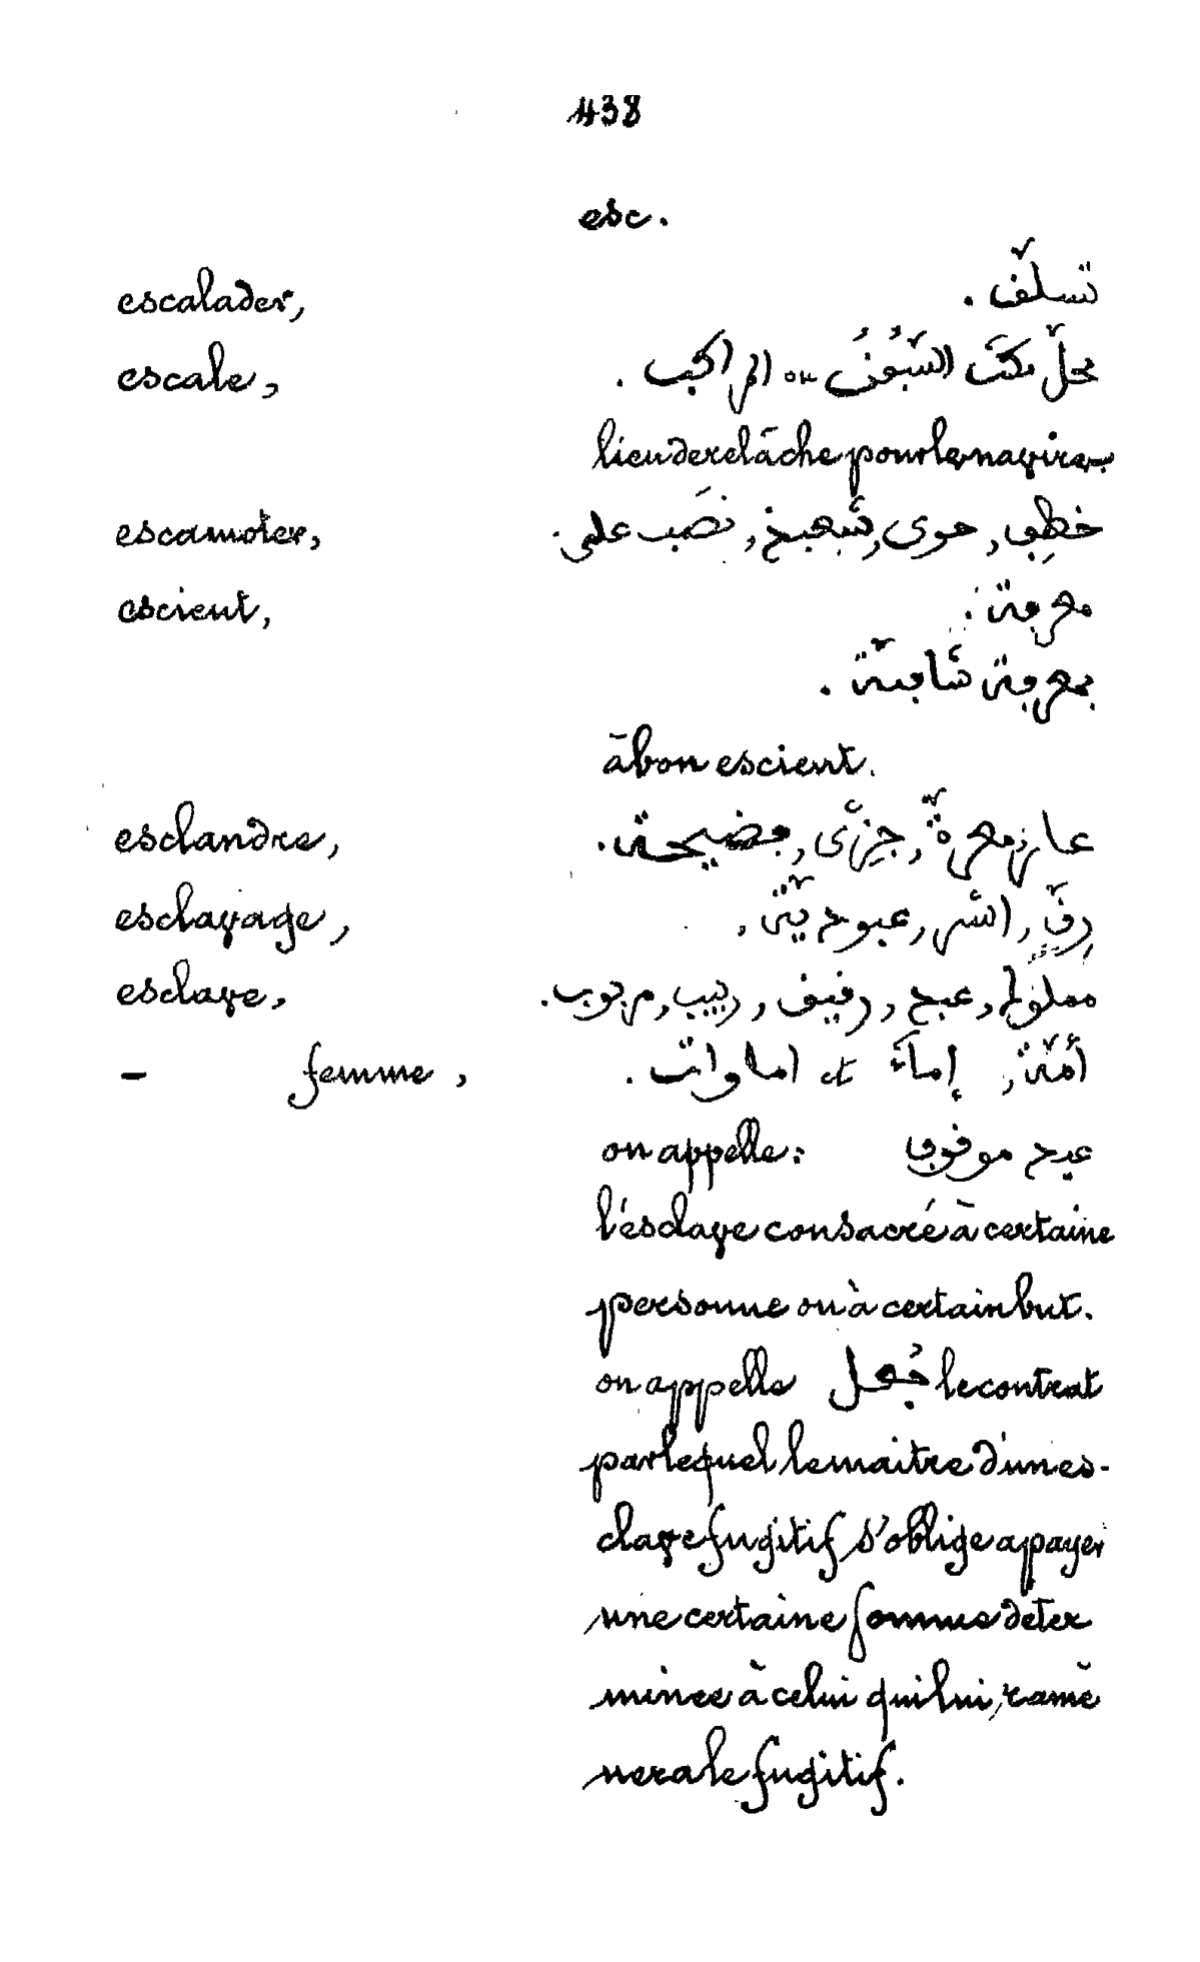 438
esc.
escalader, تسلّق .
escale, محلّ مكث السُّفُن ou المراكب .
lieu de relâche pour le navire.
escamoter, خطِف , حوى , نصَب على .
escient, معرفة .
بمعرفة ثابتة .
à bon escient.
esclandre, عار , معرّة , خِزى , فضيحة .
esclavage, رِقّ , اسر , عبوديّة ,
esclave, مملوك , عبد , رقيق , ربيب , مربوب .
— femme, أمَة , إماء et اماوات .
on appelle: عبد موقوف
l'esclave consacré à certaine
personne ou à certain but.
on appelle جُعل le contrat
par lequel le maitre d'un es-
clave fugitif s'oblige a payer
une certaine somme déter
minée à celui qui lui ramè
nera le fugitif.